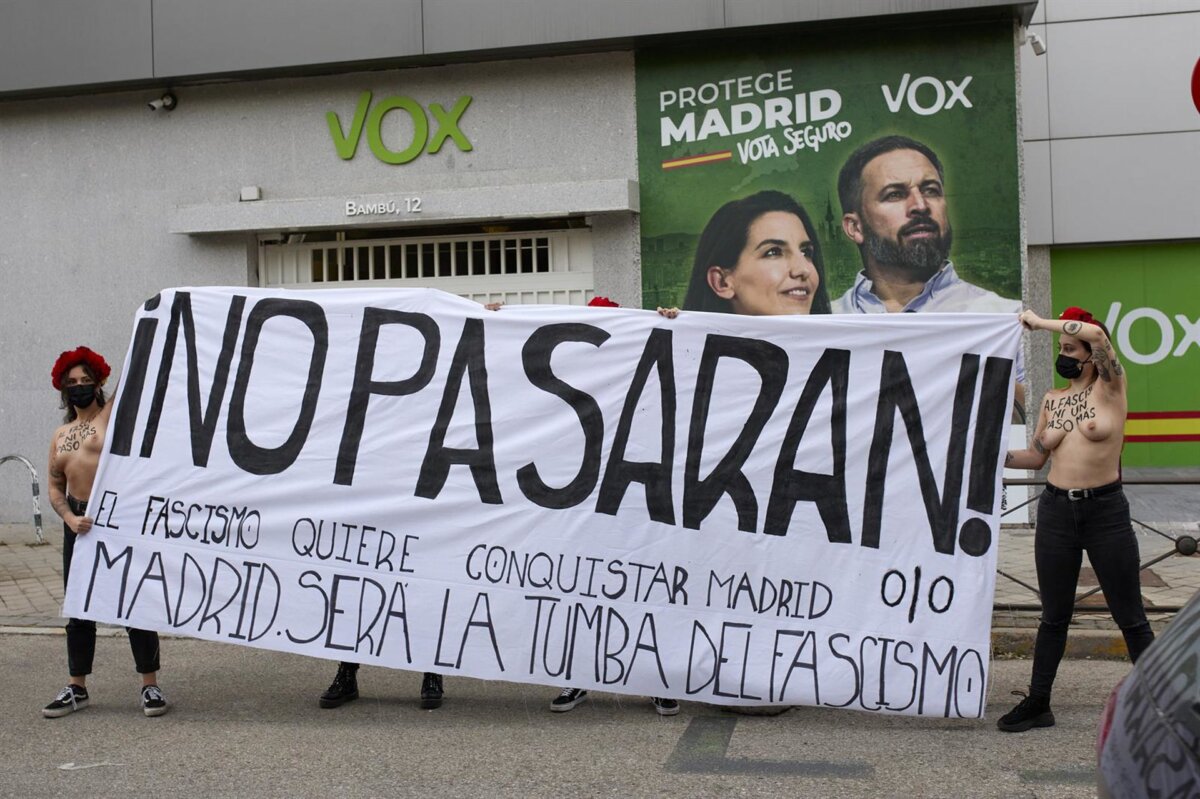 VOX
BAMBÚ, 12
PROTEGE
MADRID
VOTA SEGURO
VOX
VOX
¡NO PASARAN!
EL FASCISMO QUIERE CONQUISTAR MADRID
MADRID. SERÁ LA TUMBA DEL FASCISMO
FASCI
NI UN
PASO MAS
AL FASCIS
NI UN
PASO MAS